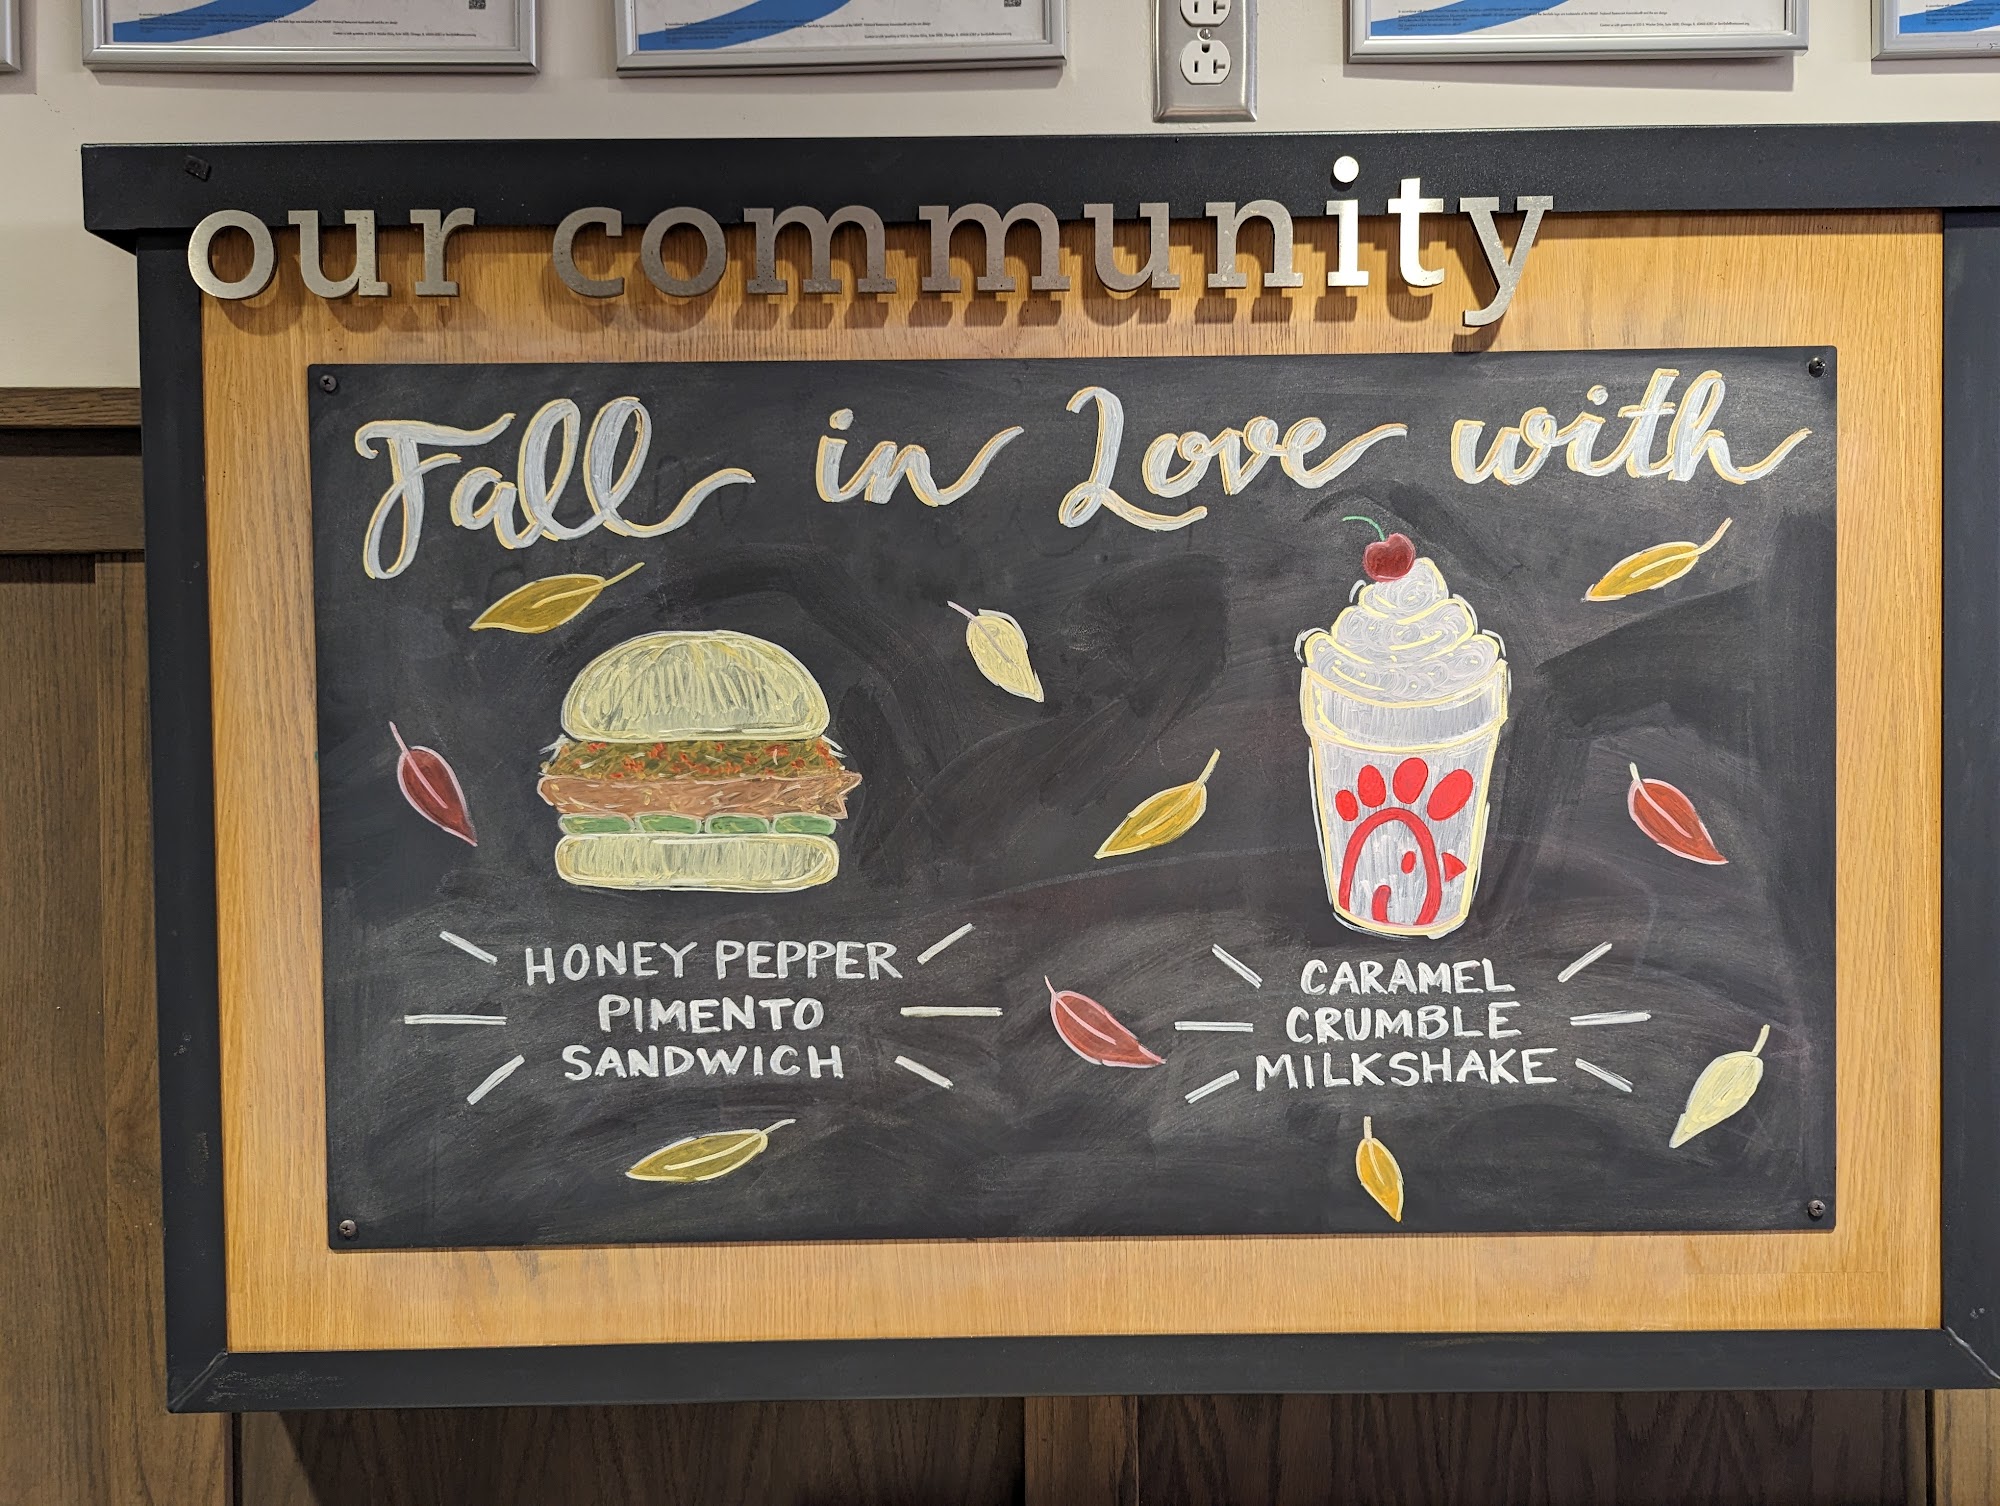 our community
Fall in Love with
HONEY PEPPER
PIMENTO
SANDWICH
CARAMEL
CRUMBLE
MILKSHAKE